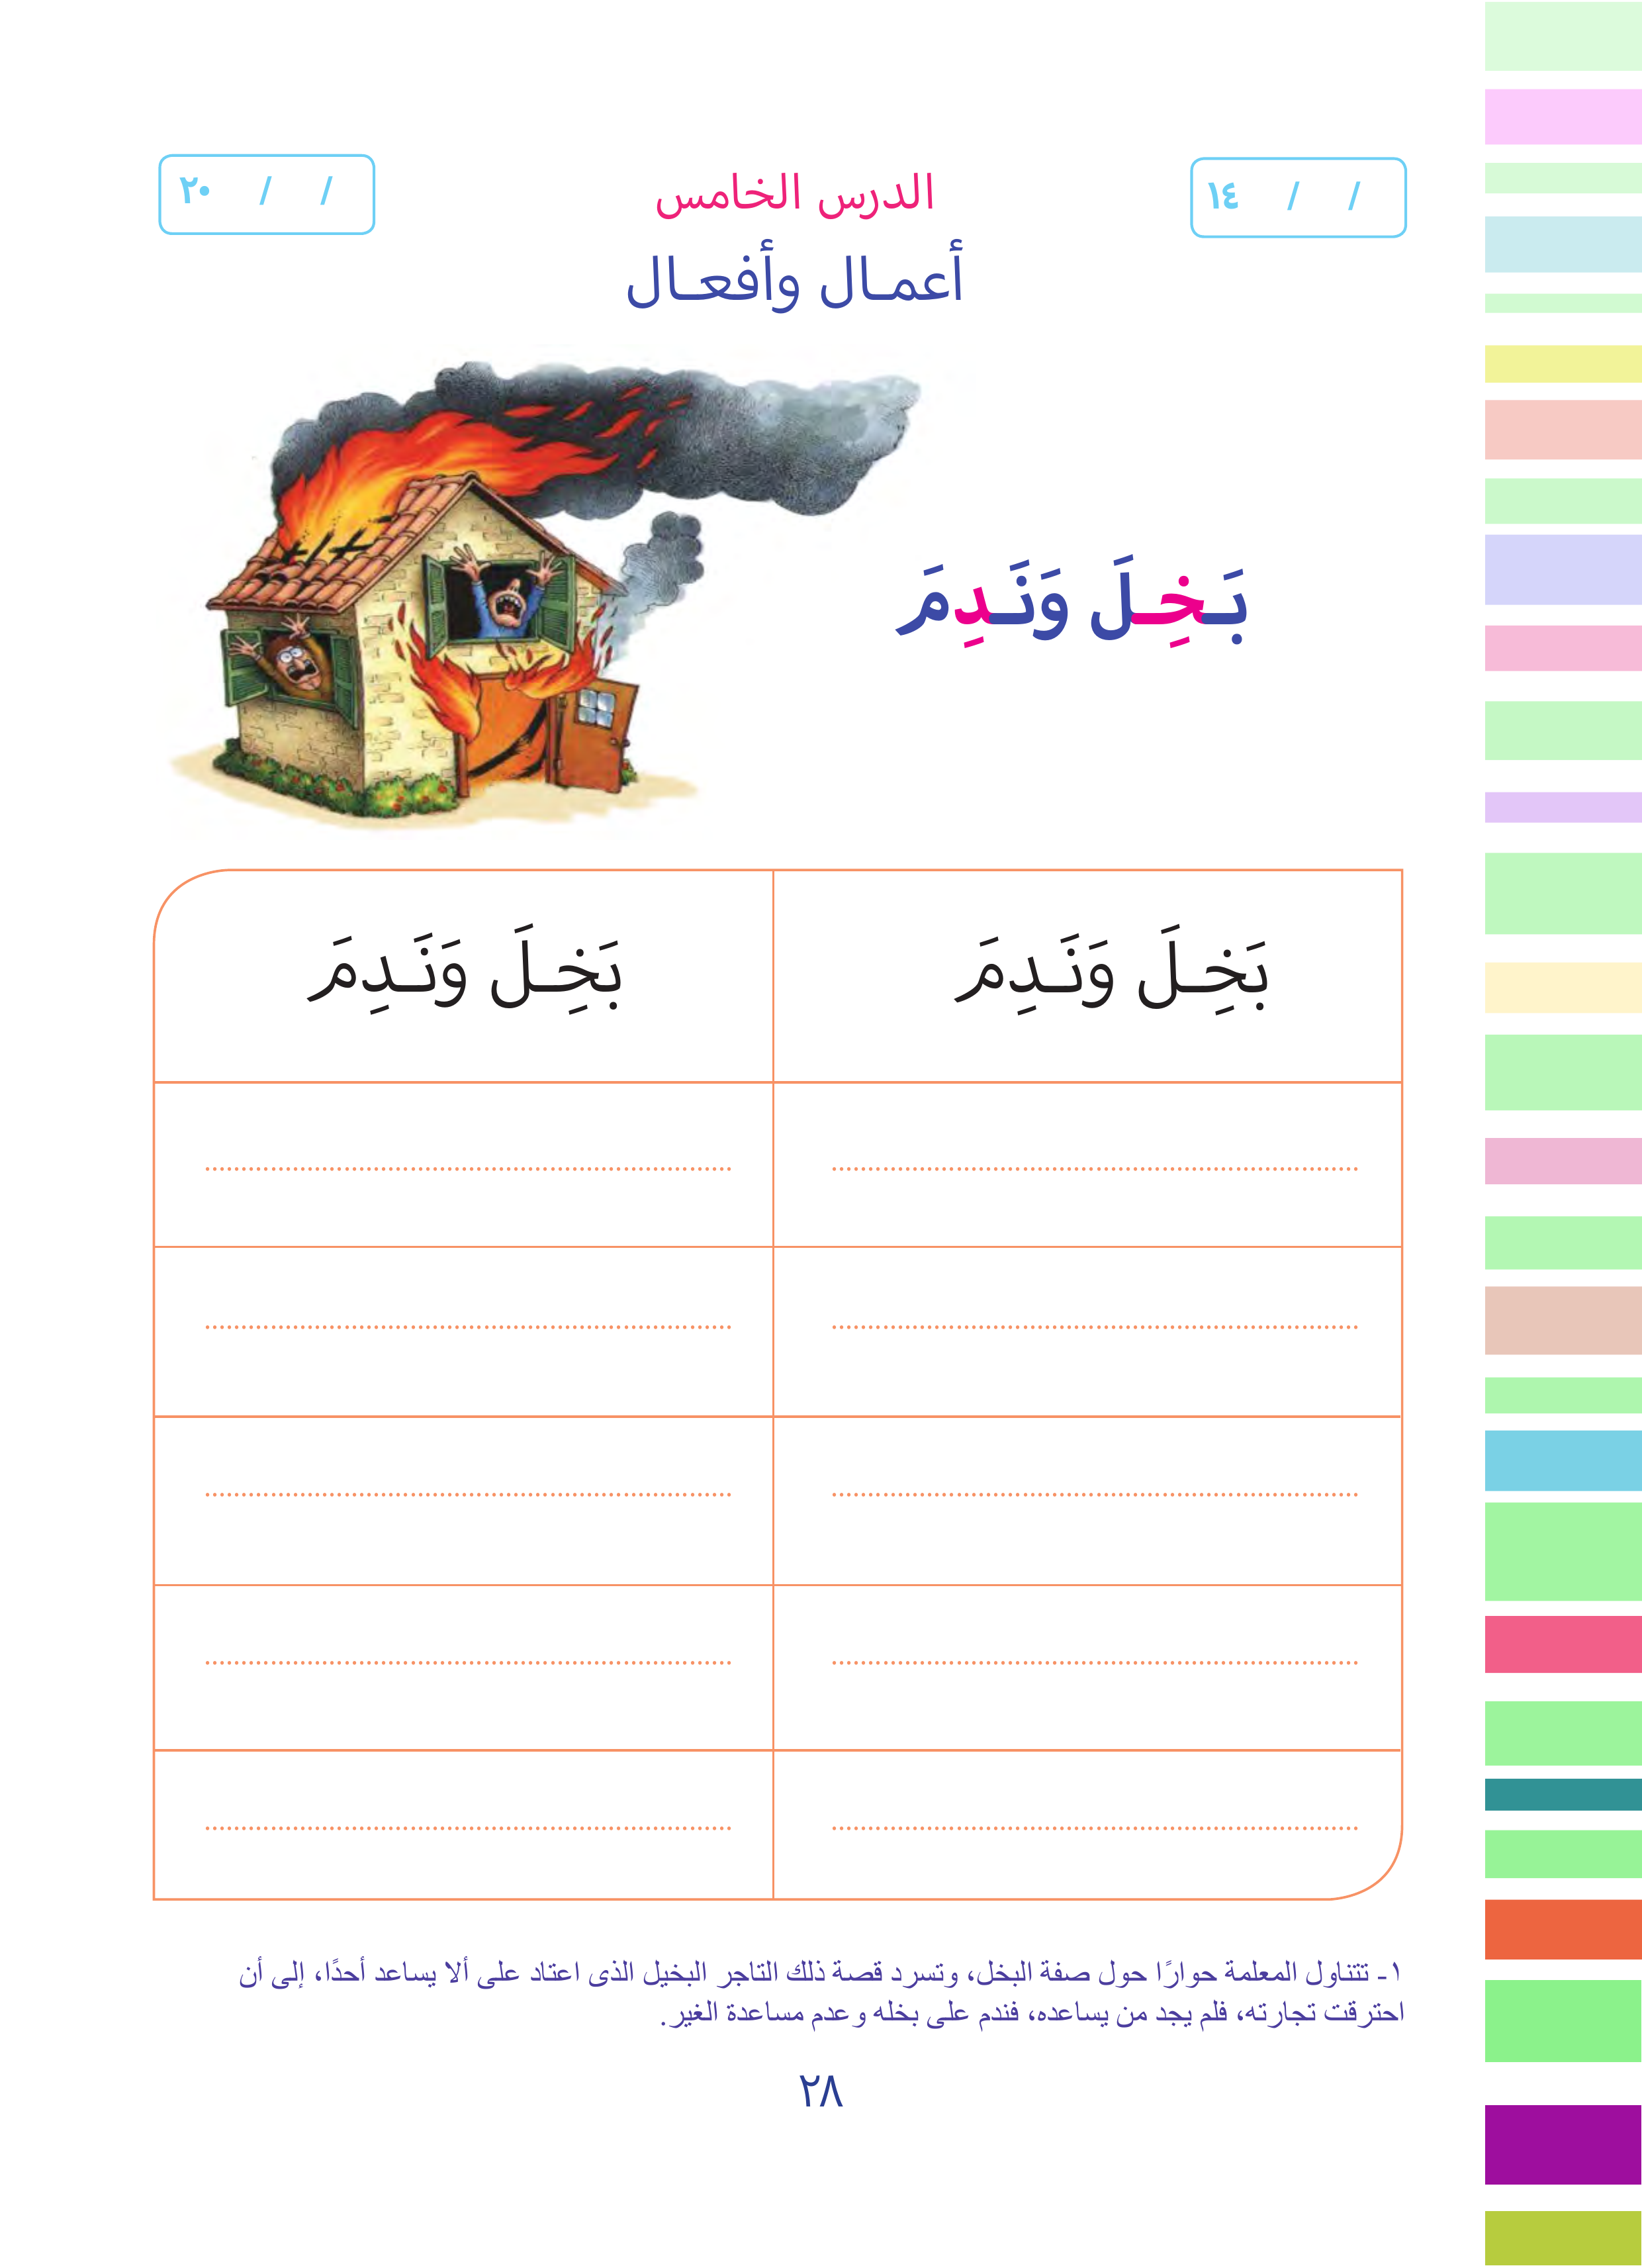 / / ١٤
الدرس الخامس
/ / ٢٠
أعمـال وأفعـال
بَـخِـلَ وَنَـدِمَ
بَخِـلَ وَنَـدِمَ
بَخِـلَ وَنَـدِمَ
١- تتناول المعلمة حوارًا حول صفة البخل، وتسرد قصة ذلك التاجر البخيل الذى اعتاد على ألا يساعد أحدًا، إلى أن
احترقت تجارته، فلم يجد من يساعده، فندم على بخله وعدم مساعدة الغير.
٢٨